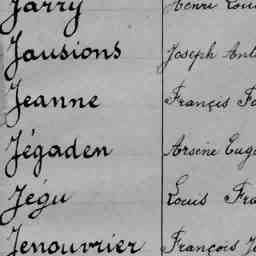 Jarry Henri Loui
Jausions Joseph Ant
Jeanne François Fo
Jégaden Arsène Eug
Jégu Louis Fra
Jenouvrier François J